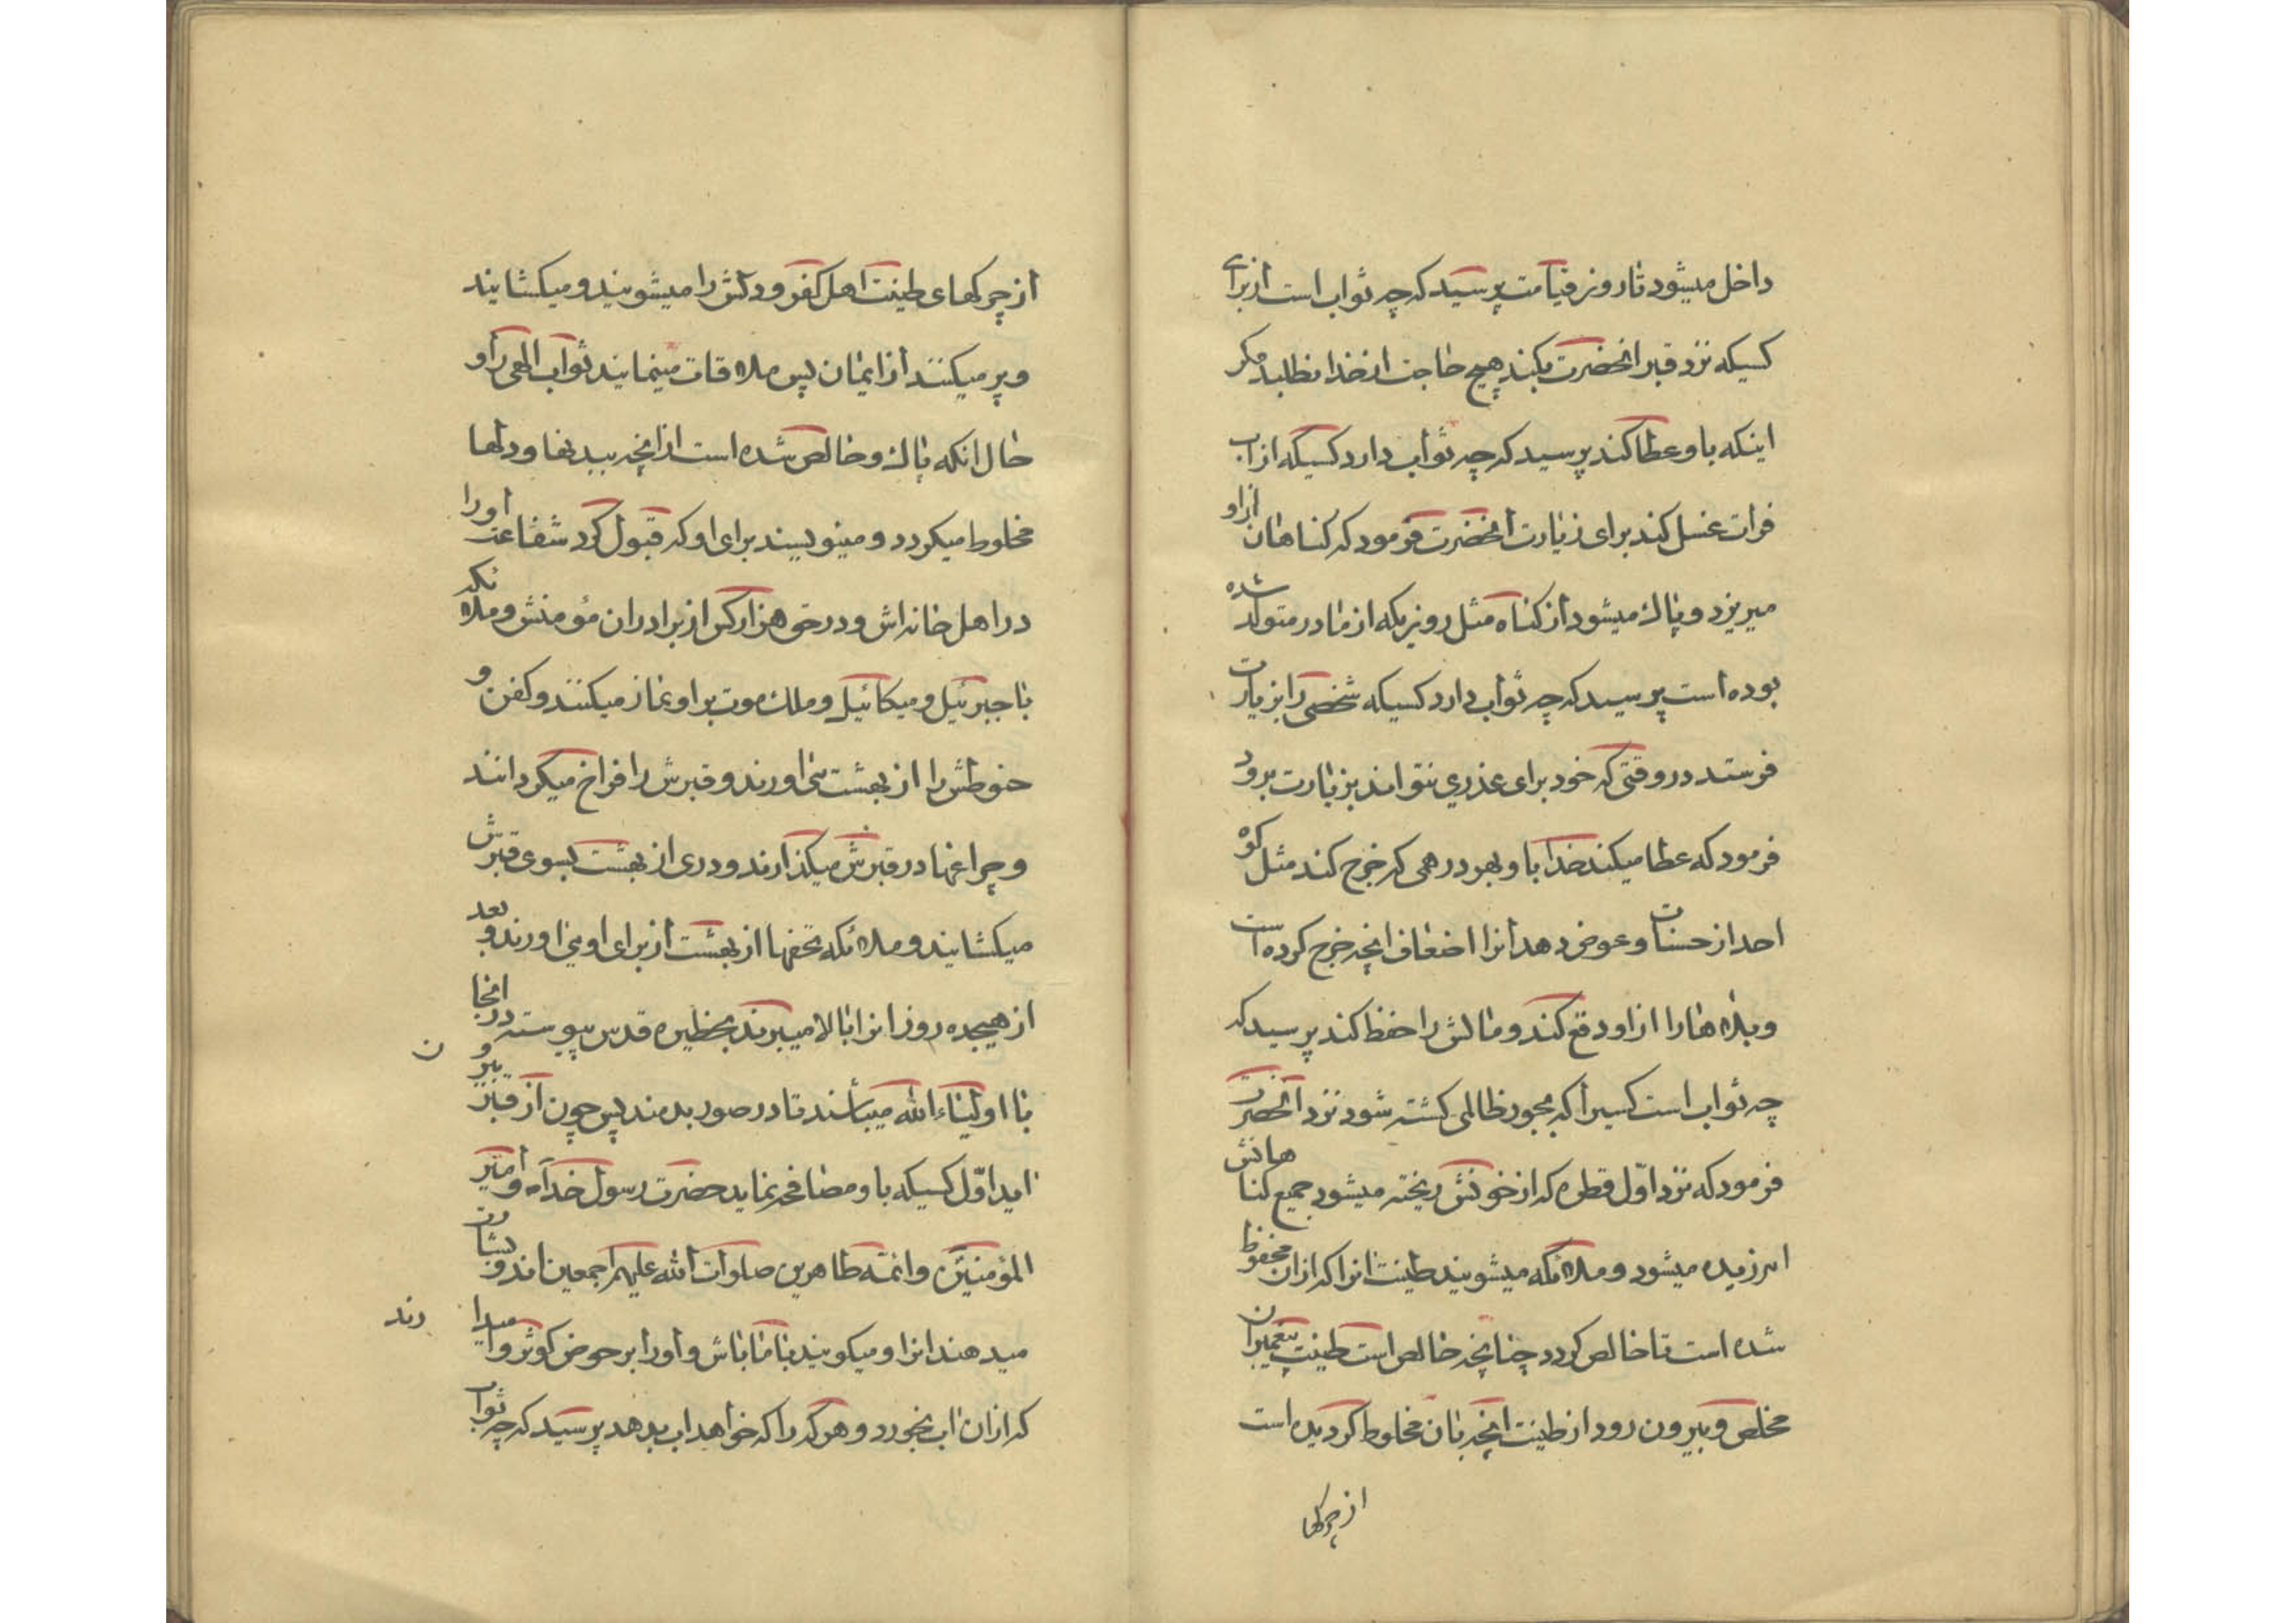 داخل میشود تا روز قیامت پرسید که چه ثواب است از برای
کسیکه نزد قبر انحضرت بکند هیچ حاجت از خدا نطلبد مکر
اینکه باو عطا کند پرسید که چه ثواب دارد کسیکه از اب
فرات غسل کند برای زیارت انحضرت فرمود که کناهان از او
میریزد و پاك میشود از کناه مثل روزیکه از مادر متولد شده
بوده است پرسید که چه ثواب دارد کسیکه شخصی را بزیارت
فرستد در وقتی که خود برای عذری نتواند بزیارت برود
فرمود که عطا میکند خدا باو بهر درهمی که خرج کند مثل کوه
احد از حسنات و عوض دهد انرا اضعاف انچه خرج کرده است
و بلاها را از او دفع کند و مالش را حفظ کند پرسید که
چه ثواب است کسیرا که بجور ظالمی کشته شود نزد انحضرت
فرمود که نزد اوّل قطره که از خونش ریخته میشود جمیع کناهانش
امرزیده میشود و ملائکه میشویند طینت انرا که از ان محفوظ
شده است تا خالص کردد چنانچه خالص است طینت پیغمبران
مخلص و بیرون رود از طینت انچه بان مخلوط کردیده است
از چرکها
از چرکهای طینت اهل کفر و دلش را میشویند و میکشایند
و پر میکنند از ایمان پس ملاقات مینمایند ثواب الهی را و
حال انکه پاك و خالص شده است از انچه ببدنها و دلها
مخلوط میکردد و مینویسند برای او که قبول کرد شفاعت اورا
در اهل خانه اش و در حق هزار کس از برادران مؤمنش و ملائکه
با جبرئیل و میکائیل و ملك موت بر او نماز میکنند و کفن و
حنوطش را از بهشت می اورند و قبرش را فراخ میکردانند
و چراغها در قبرش میکذارند و دری از بهشت بسوی قبرش
میکشایند و ملائکه تحفها از بهشت از برای او می اورند و بعد
از هیجده روز انرا بالا میبرند بحظیره قدس پیوسته در انجا
با اولیاء الله میباشند تا در صور بدمند پس چون از قبر بیرون
اید اوّل کسیکه باو مصافحه نماید حضرت رسول خداه و امیر
المؤمنین و ائمه طاهرین صلوات الله علیهم اجمعین اند و بشارت
میدهند انرا و میکویند با ما باش و اورا بر حوض کوثر وامیدارند
که از ان اب بخورد و هر که را که خواهد اب بدهد پرسید که چه ثواب